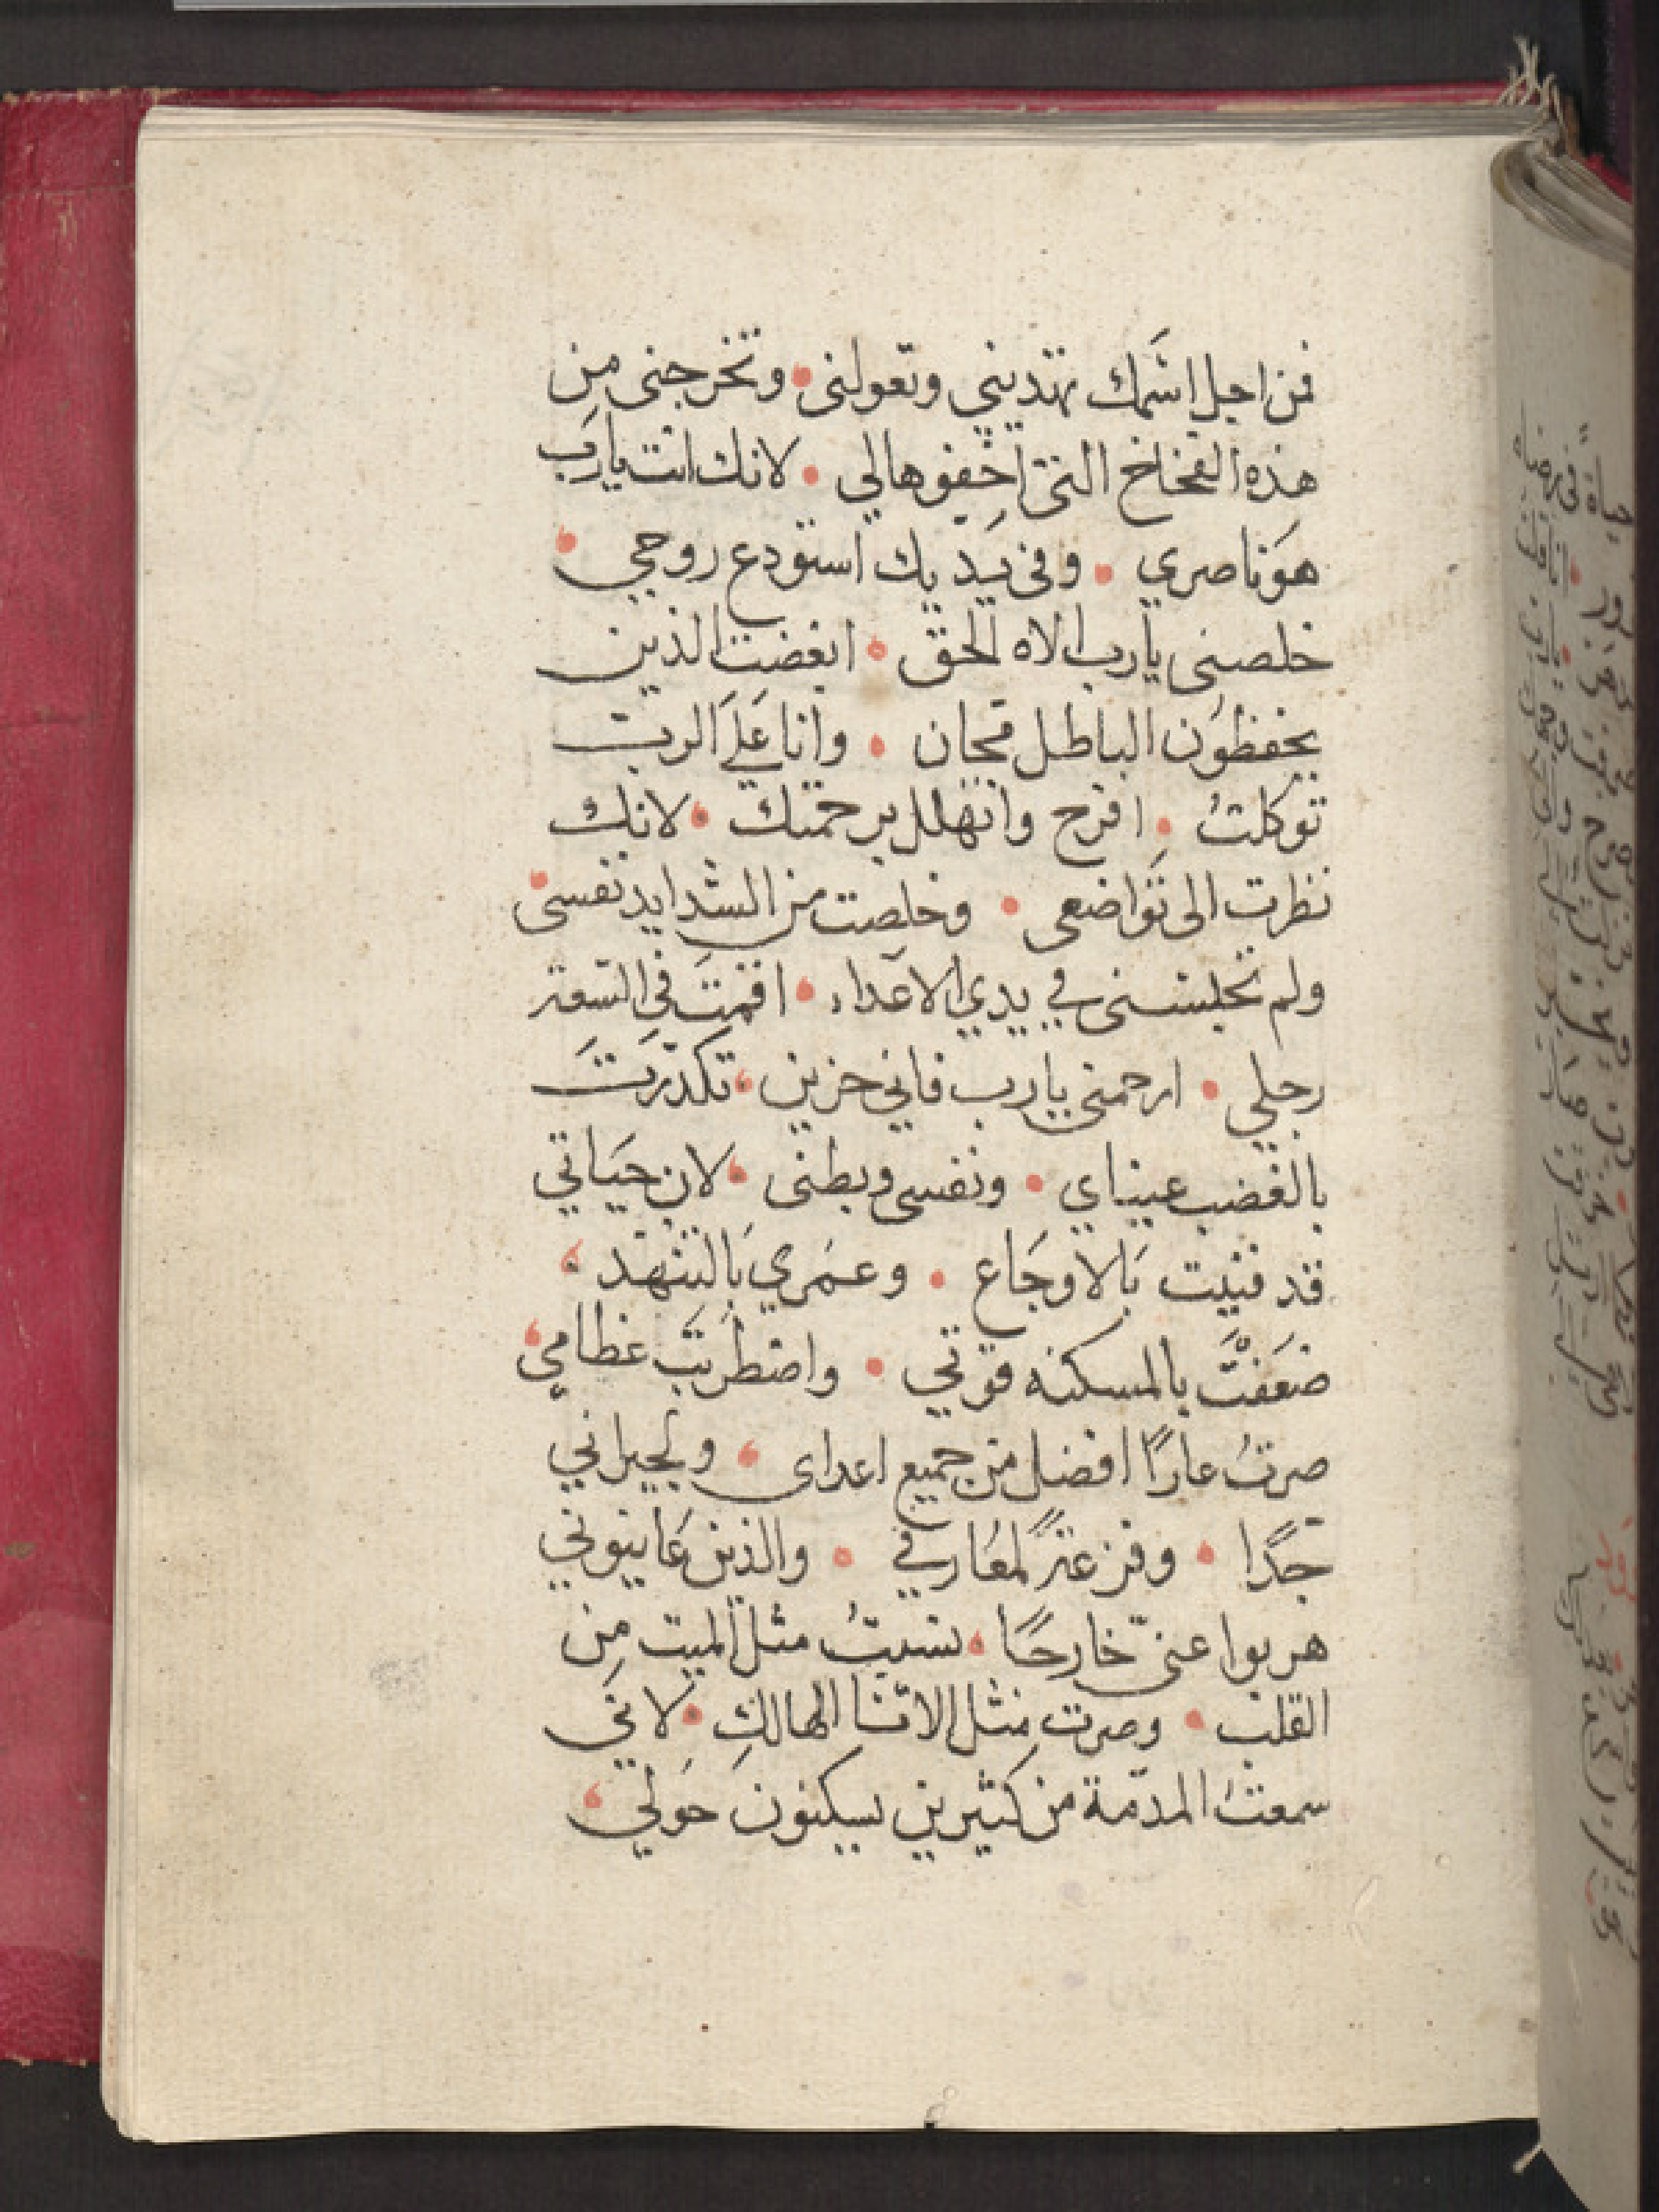 فمن اجل اسَمك تهديني وتعولنى • وتخرجنى مِن
هذه الفخاخ التى اخفوها لي • لانك انت يارَب
هوَ ناصري • وفى يَديك استودع روحي •
خلصنى يارب الاه الحق • ابغضت الذين
يحفظوَن الباطل مجان • وانا عَلَى الرب
توكلتُ • افرح واتهلل برحمتك • لانك
نظرت الى تَواضعى • وخلصت من الشدايد نفسى •
ولم تحبسنى في يدي الاعَداء • اقمتَ في السعة
رجلي • ارحمنى يارب فاني حزين • تكدّرَتَ
بالغضب عيناي • ونفسى وبطنى • لان حيَاتي
قد فنيت بَالاوجَاع • وعمَري بَالتنهد •
ضعَفتَّ بالمسكنه قوتي • واضطرَبتَ عظامي •
صرتُ عارًا افضل من جميع اعداى • ولجيراني
جَدًا • وفزعةً لمعَارفي • والذين عَاينوني
هربوا عنىّ خارجًا • نسيتُ مثل الميت مِن
القلب • وصرت مِثل الانَا الهالكِ • لانَي
سمعتُ المدمّة من كثيرين يسكنونَ حوَلي •